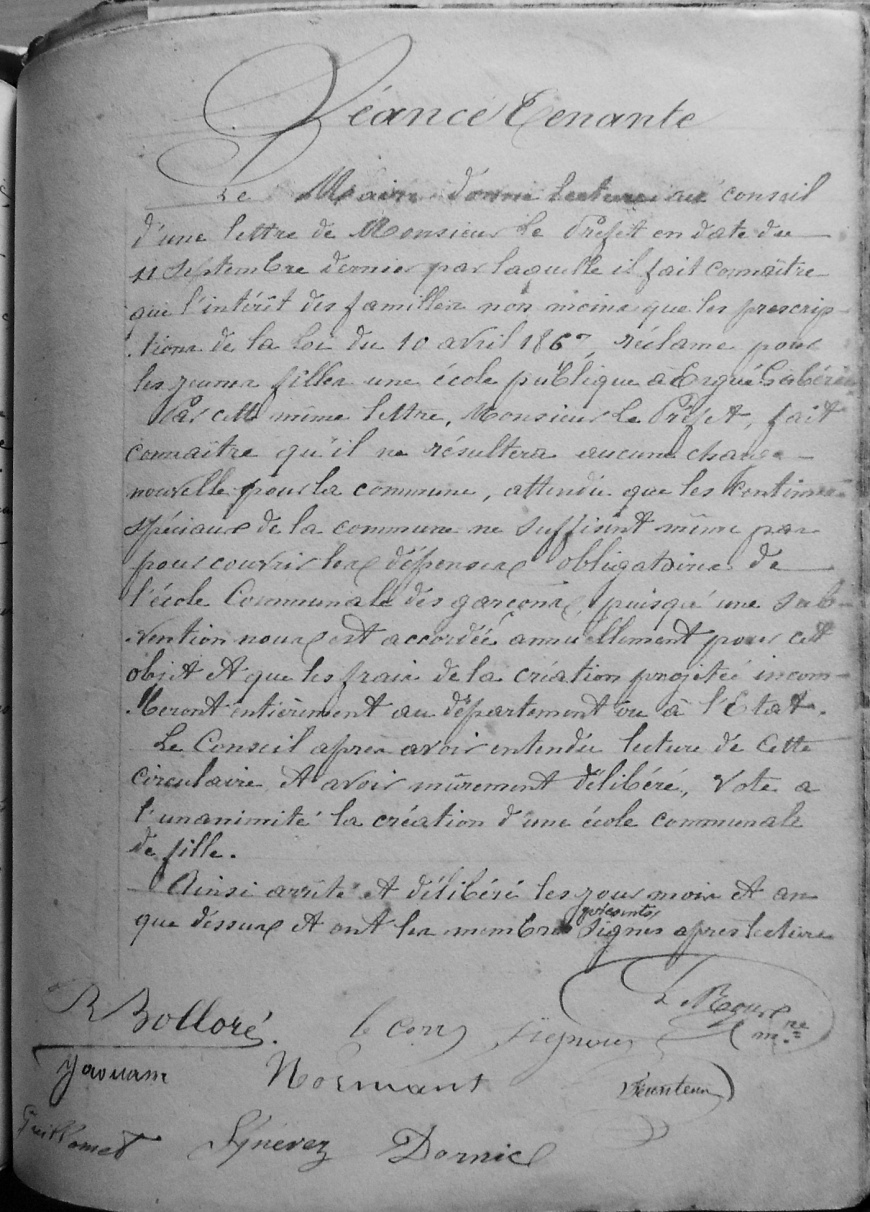 Séance Tenante
Le Maire donne lecture au conseil
d'une lettre de Monsieur Le Préfet en date du
11 Septembre dernier par laquelle il fait connaître
que l'intérêt des familles non moins que les prescrip-
tions de la Loi du 10 avril 1867, réclame pour
les jeunes filles une école publique à Ergué Gabéric
Par cette même lettre, Monsieur Le Préfet, fait
connaître qu'il ne résultera aucune charge
nouvelle pour la commune, attendu que les centimes
spéciaux de la commune ne suffisent même pas
pour couvrir les dépenses obligatoires de
l'école Communale des garçons, puisqu'une sub-
vention nous est accordée annuellement pour cet
objet et que les frais de la création projetée incom-
beront entièrement au département ou à l'Etat.
Le Conseil après avoir entendu lecture de cette
circulaire et avoir mûrement délibéré, vote a
l'unanimité la création d'une école communale
de fille.
Ainsi arrêté et délibéré les jour mois et an
que dessus et ont les membres présents signés après lecture
R Bolloré Le Corr Signour Le Roux mre
Yaouanc Normant
Guillomet Sénevez Dornic